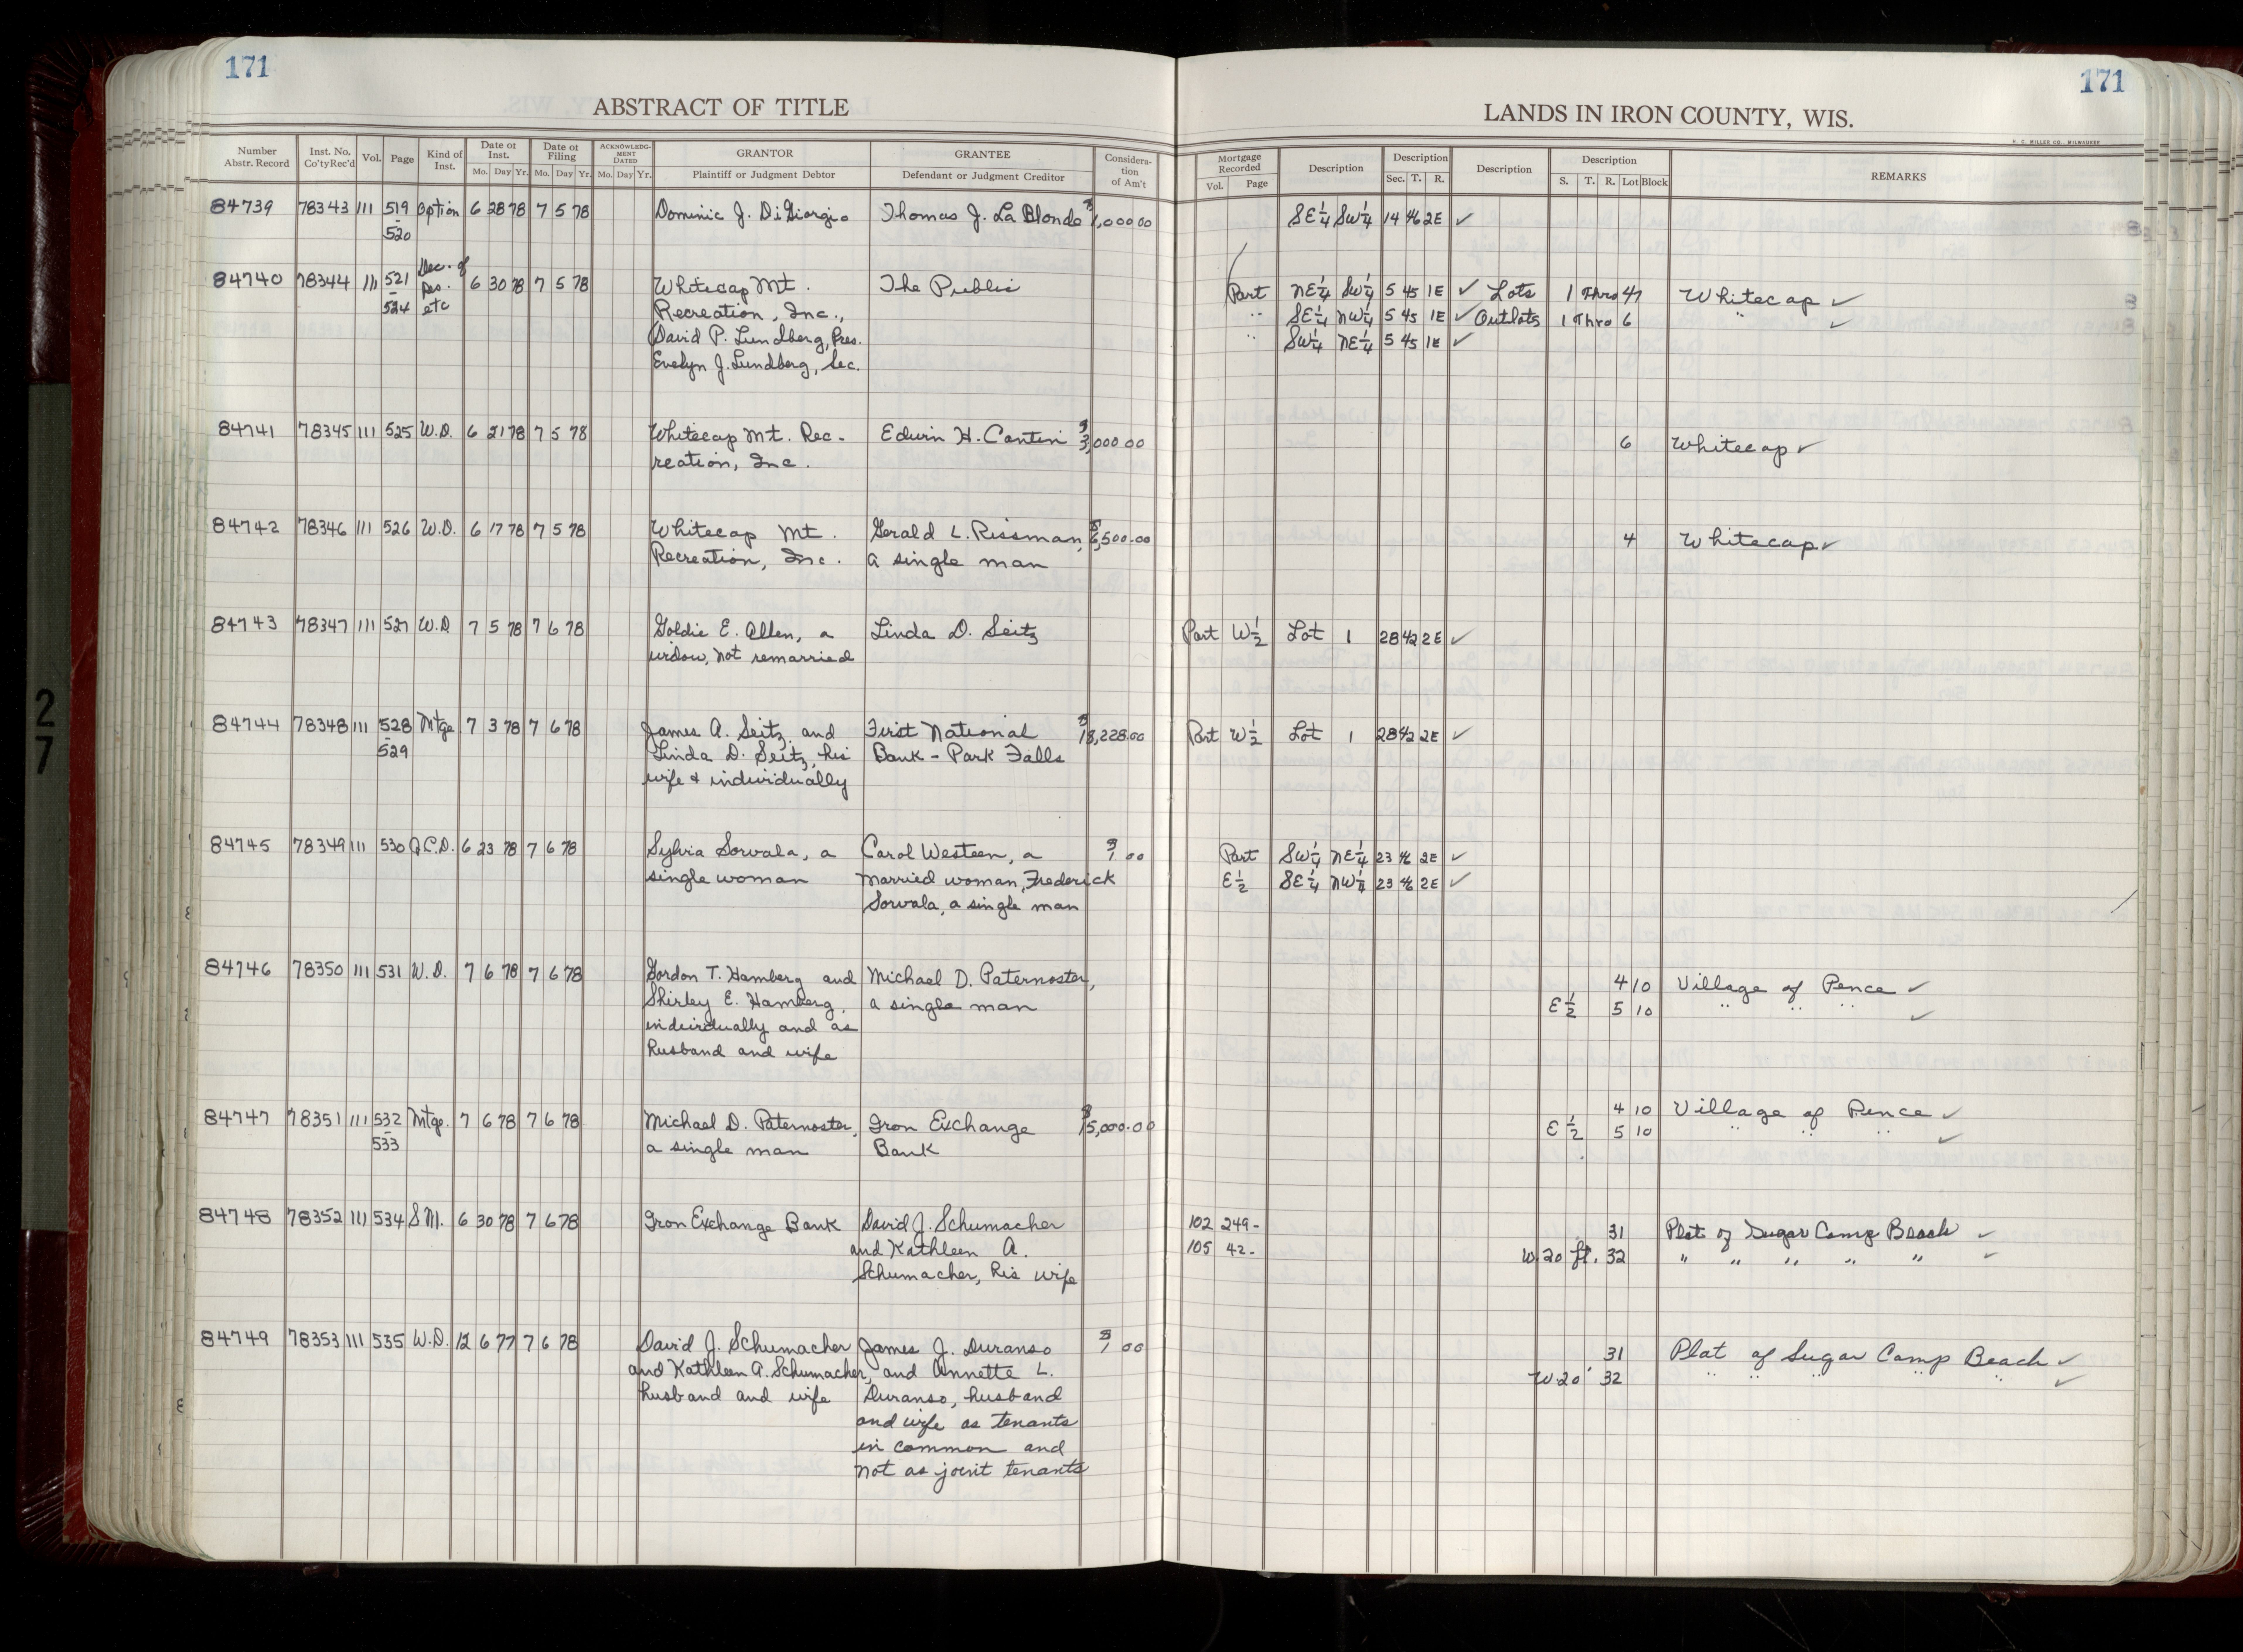 171
171
ABSTRACT OF TITLE
LANDS IN IRON COUNTY, WIS.
H. C. MILLER CO., MILWAUKEE
Number Abstr. Record Inst. No. Co'ty Rec'd Vol. Page Kind of Inst. Date of Inst. Mo. Day Yr. Date of Filing Mo. Day Yr. ACKNOWLEDGMENT DATED Mo. Day Yr. GRANTOR Plaintiff or Judgment Debtor GRANTEE Defendant or Judgment Creditor Consideration of Am't Mortgage Recorded Vol. Page Description Description Sec. T. R. Description Description S. T. R. Lot Block REMARKS
84739 78343 111 519 Option 6 28 78 7 5 78 Dominic J. DiGiorgio Thomas J. La Blonde $1,000.00 SE¼ SW¼ 14 46 2E ✓
- 520
84740 78344 111 521 Dec. of 6 30 78 7 5 78 Whitecap Mt. The Public Part NE¼ SW¼ 5 45 1E ✓ Lots 1 Thro 47 Whitecap ✓
- 524 Res. etc Recreation, Inc., " SE¼ NW¼ 5 45 1E ✓ Outlots 1 Thro 6 " ✓
David P. Lundberg, Pres. " SW¼ NE¼ 5 45 1E ✓
Evelyn J. Lundberg, Sec.
84741 78345 111 525 W.D. 6 21 78 7 5 78 Whitecap Mt. Rec- Edwin H. Cantin $3,000.00 6 Whitecap ✓
reation, Inc.
84742 78346 111 526 W.D. 6 17 78 7 5 78 Whitecap Mt. Gerald L. Rissman, $6,500.00 4 Whitecap ✓
Recreation, Inc. a single man
84743 78347 111 527 W.D 7 5 78 7 6 78 Goldie E. Allen, a Linda D. Seitz Part W½ Lot 1 28 42 2E ✓
widow, not remarried
84744 78348 111 528 Mtge 7 3 78 7 6 78 James A. Seitz and First National $18,228.00 Part W½ Lot 1 28 42 2E ✓
- 529 Linda D. Seitz, his Bank - Park Falls
wife & individually
84745 78349 111 530 Q.C.D. 6 23 78 7 6 78 Sylvia Sorvala, a Carol Westeen, a $1.00 Part SW¼ NE¼ 23 46 2E ✓
single woman married woman, Frederick E½ SE¼ NW¼ 23 46 2E ✓
Sorvala, a single man
84746 78350 111 531 W.D. 7 6 78 7 6 78 Gordon T. Hamberg and Michael D. Paternoster, 4 10 Village of Pence ✓
Shirley E. Hamberg, a single man E½ 5 10 " " " ✓
individually and as
husband and wife
84747 78351 111 532 Mtge. 7 6 78 7 6 78 Michael D. Paternoster, Iron Exchange $15,000.00 4 10 Village of Pence ✓
- 533 a single man Bank E½ 5 10 " " " ✓
84748 78352 111 534 S.M. 6 30 78 7 6 78 Iron Exchange Bank David J. Schumacher 102 249- 31 Plat of Sugar Camp Beach ✓
and Kathleen A. 105 42- W. 20 ft. 32 " " " " " ✓
Schumacher, his wife
84749 78353 111 535 W.D. 12 6 77 7 6 78 David J. Schumacher James J. Duranso $1.00 31 Plat of Sugar Camp Beach ✓
and Kathleen A. Schumacher, and Annette L. W. 20' 32 " " " " " ✓
husband and wife Duranso, husband
and wife as tenants
in common and
not as joint tenants
27